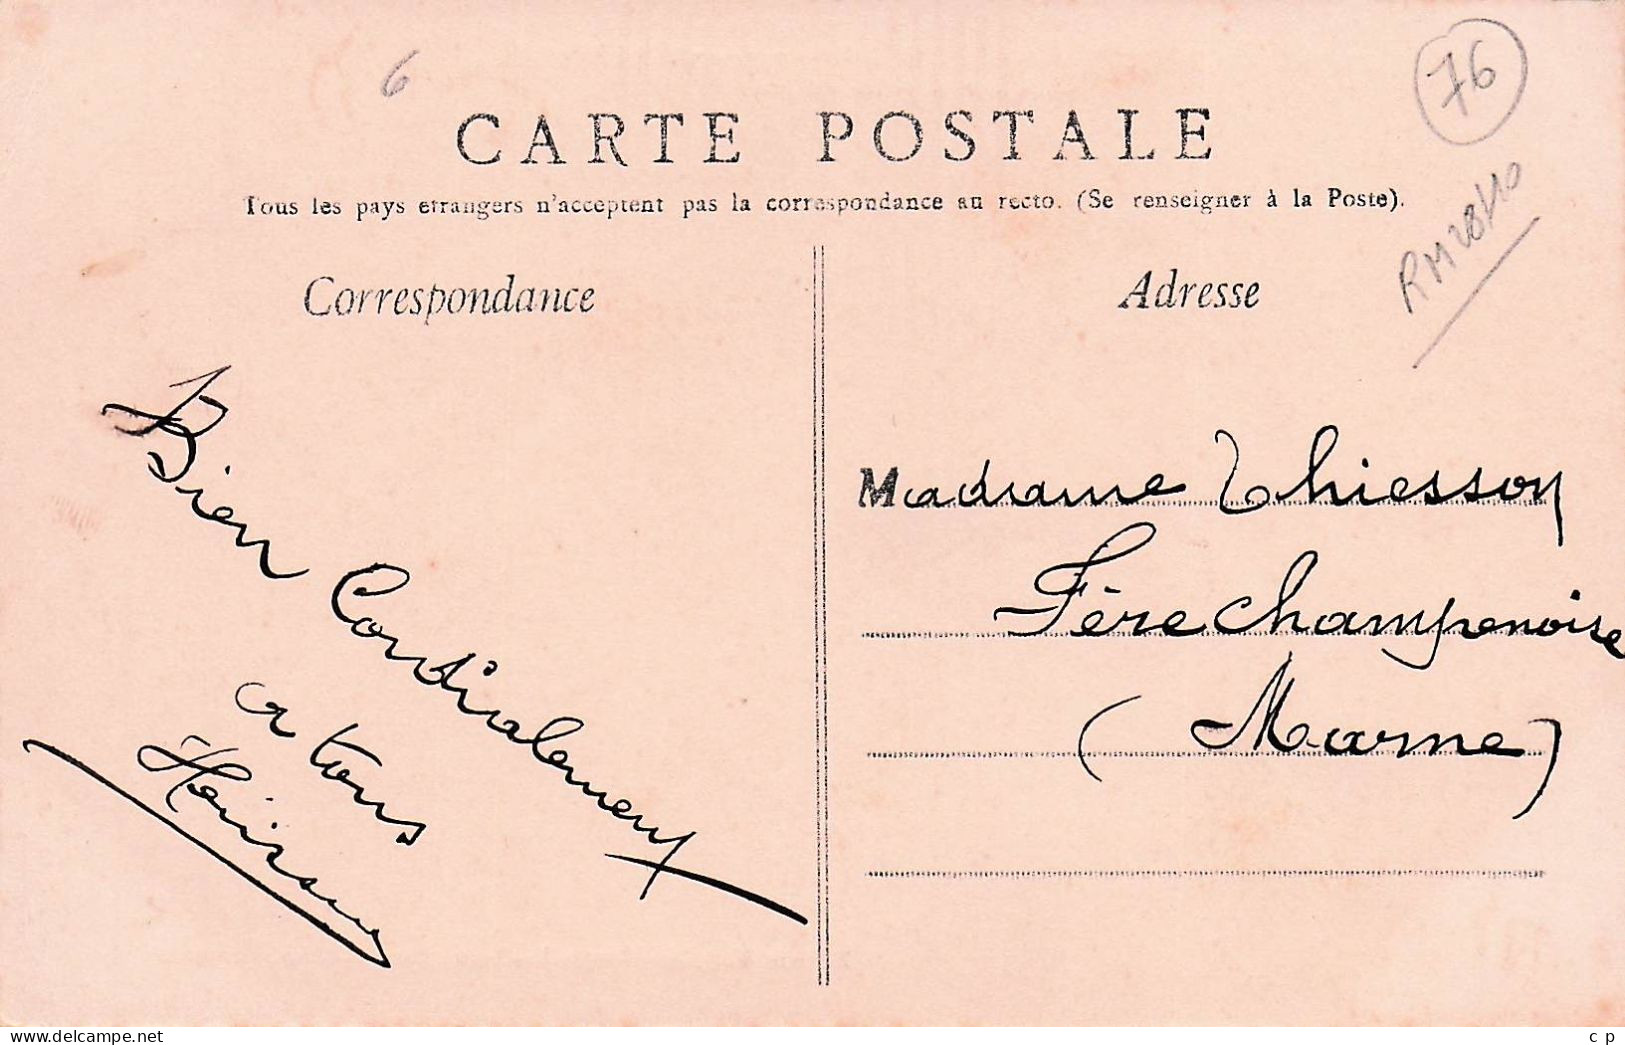 6
76
CARTE POSTALE
Tous les pays etrangers n'acceptent pas la correspondance au recto. (Se renseigner à la Poste).
RM 28/110
Correspondance
Adresse
Bien Cordialement
a tous
Madame Thiesson
Fère Champenoise
(Marne)
www.delcampe.net
c p